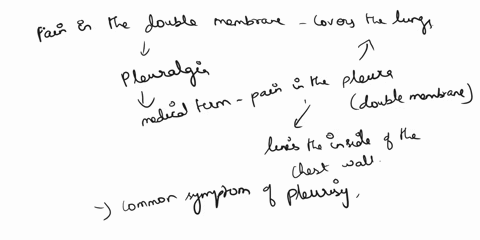 Pain in the double membrane - covers the lungs
Pleuralgia
medical term - pain in the pleura
(double membrane)
lines the inside of the
chest wall.
-) common symptom of pleurisy.